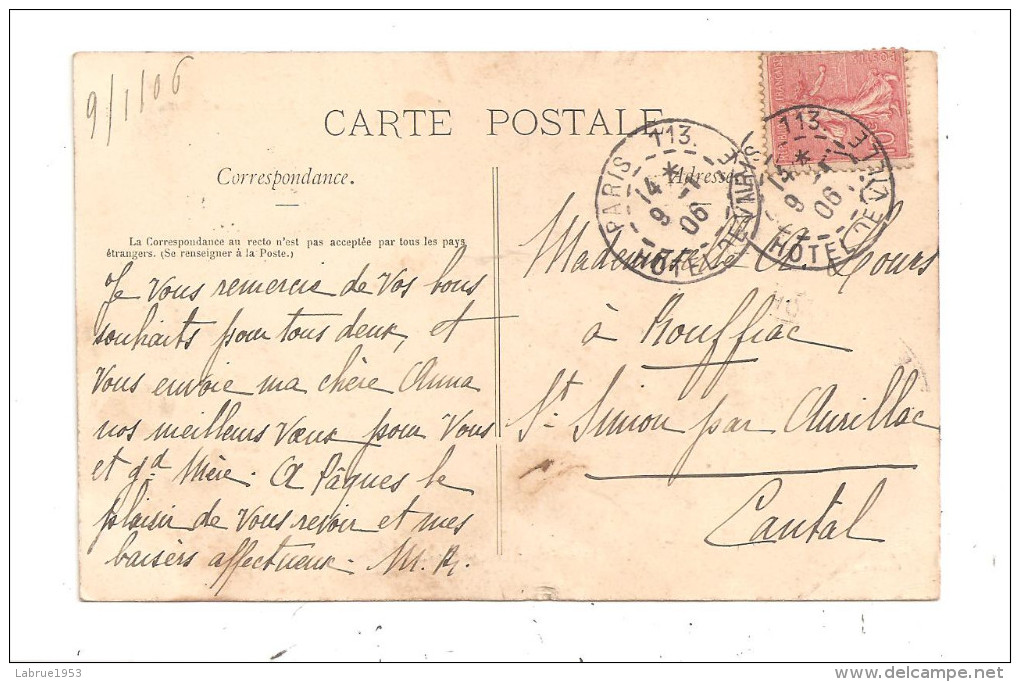 9/1/06
CARTE POSTALE
Correspondance.
Adresse
La Correspondance au recto n'est pas acceptée par tous les pays
étrangers. (Se renseigner à la Poste.)
Je vous remercie de vos bons
souhaits pour tous deux, et
vous envoie ma chère Anna
nos meilleurs vœux pour vous
et gd Mère. A Pâques le
plaisir de vous revoir et mes
baisers affectueux. M. R.
PARIS 113.
14 *
9 - 1
06
HOTEL DE VILLE
PARIS 113.
14 *
9 - 1
06
HOTEL DE VILLE
POSTES
10
Mademoiselle A.
à Rouffiac
St. Simon par Aurillac
Cantal
Labrue1953
www.delcampe.net